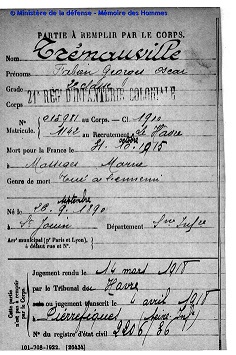 © Ministère de la défense - Mémoire des Hommes
PARTIE À REMPLIR PAR LE CORPS.
Nom Trémauville
Prénoms Fabien Georges Oscar
Grade
Corps 21e RÉGt D'INFANTERIE COLONIALE
No 015911 au Corps. — Cl. 1910
Matricule. 1162 au Recrutement Le Havre
Mort pour la France le 31 octobre 1915
à Massiges Marne
Genre de mort Tué à l'ennemi
septembre
Né le 28. 9. 1890
à St Jouin Département Sne Infre
Arrt municipal (pr Paris et Lyon),
à défaut rue et No.
Cette partie
n'est pas à remplir
par le Corps.
Jugement rendu le 14 mars 1918
par le Tribunal de Havre
ou jugement transcrit le 4 avril 1918
à Pierrefiques (Seine Infre)
No du registre d'état civil 2206/86
101-708-1922. [26434]